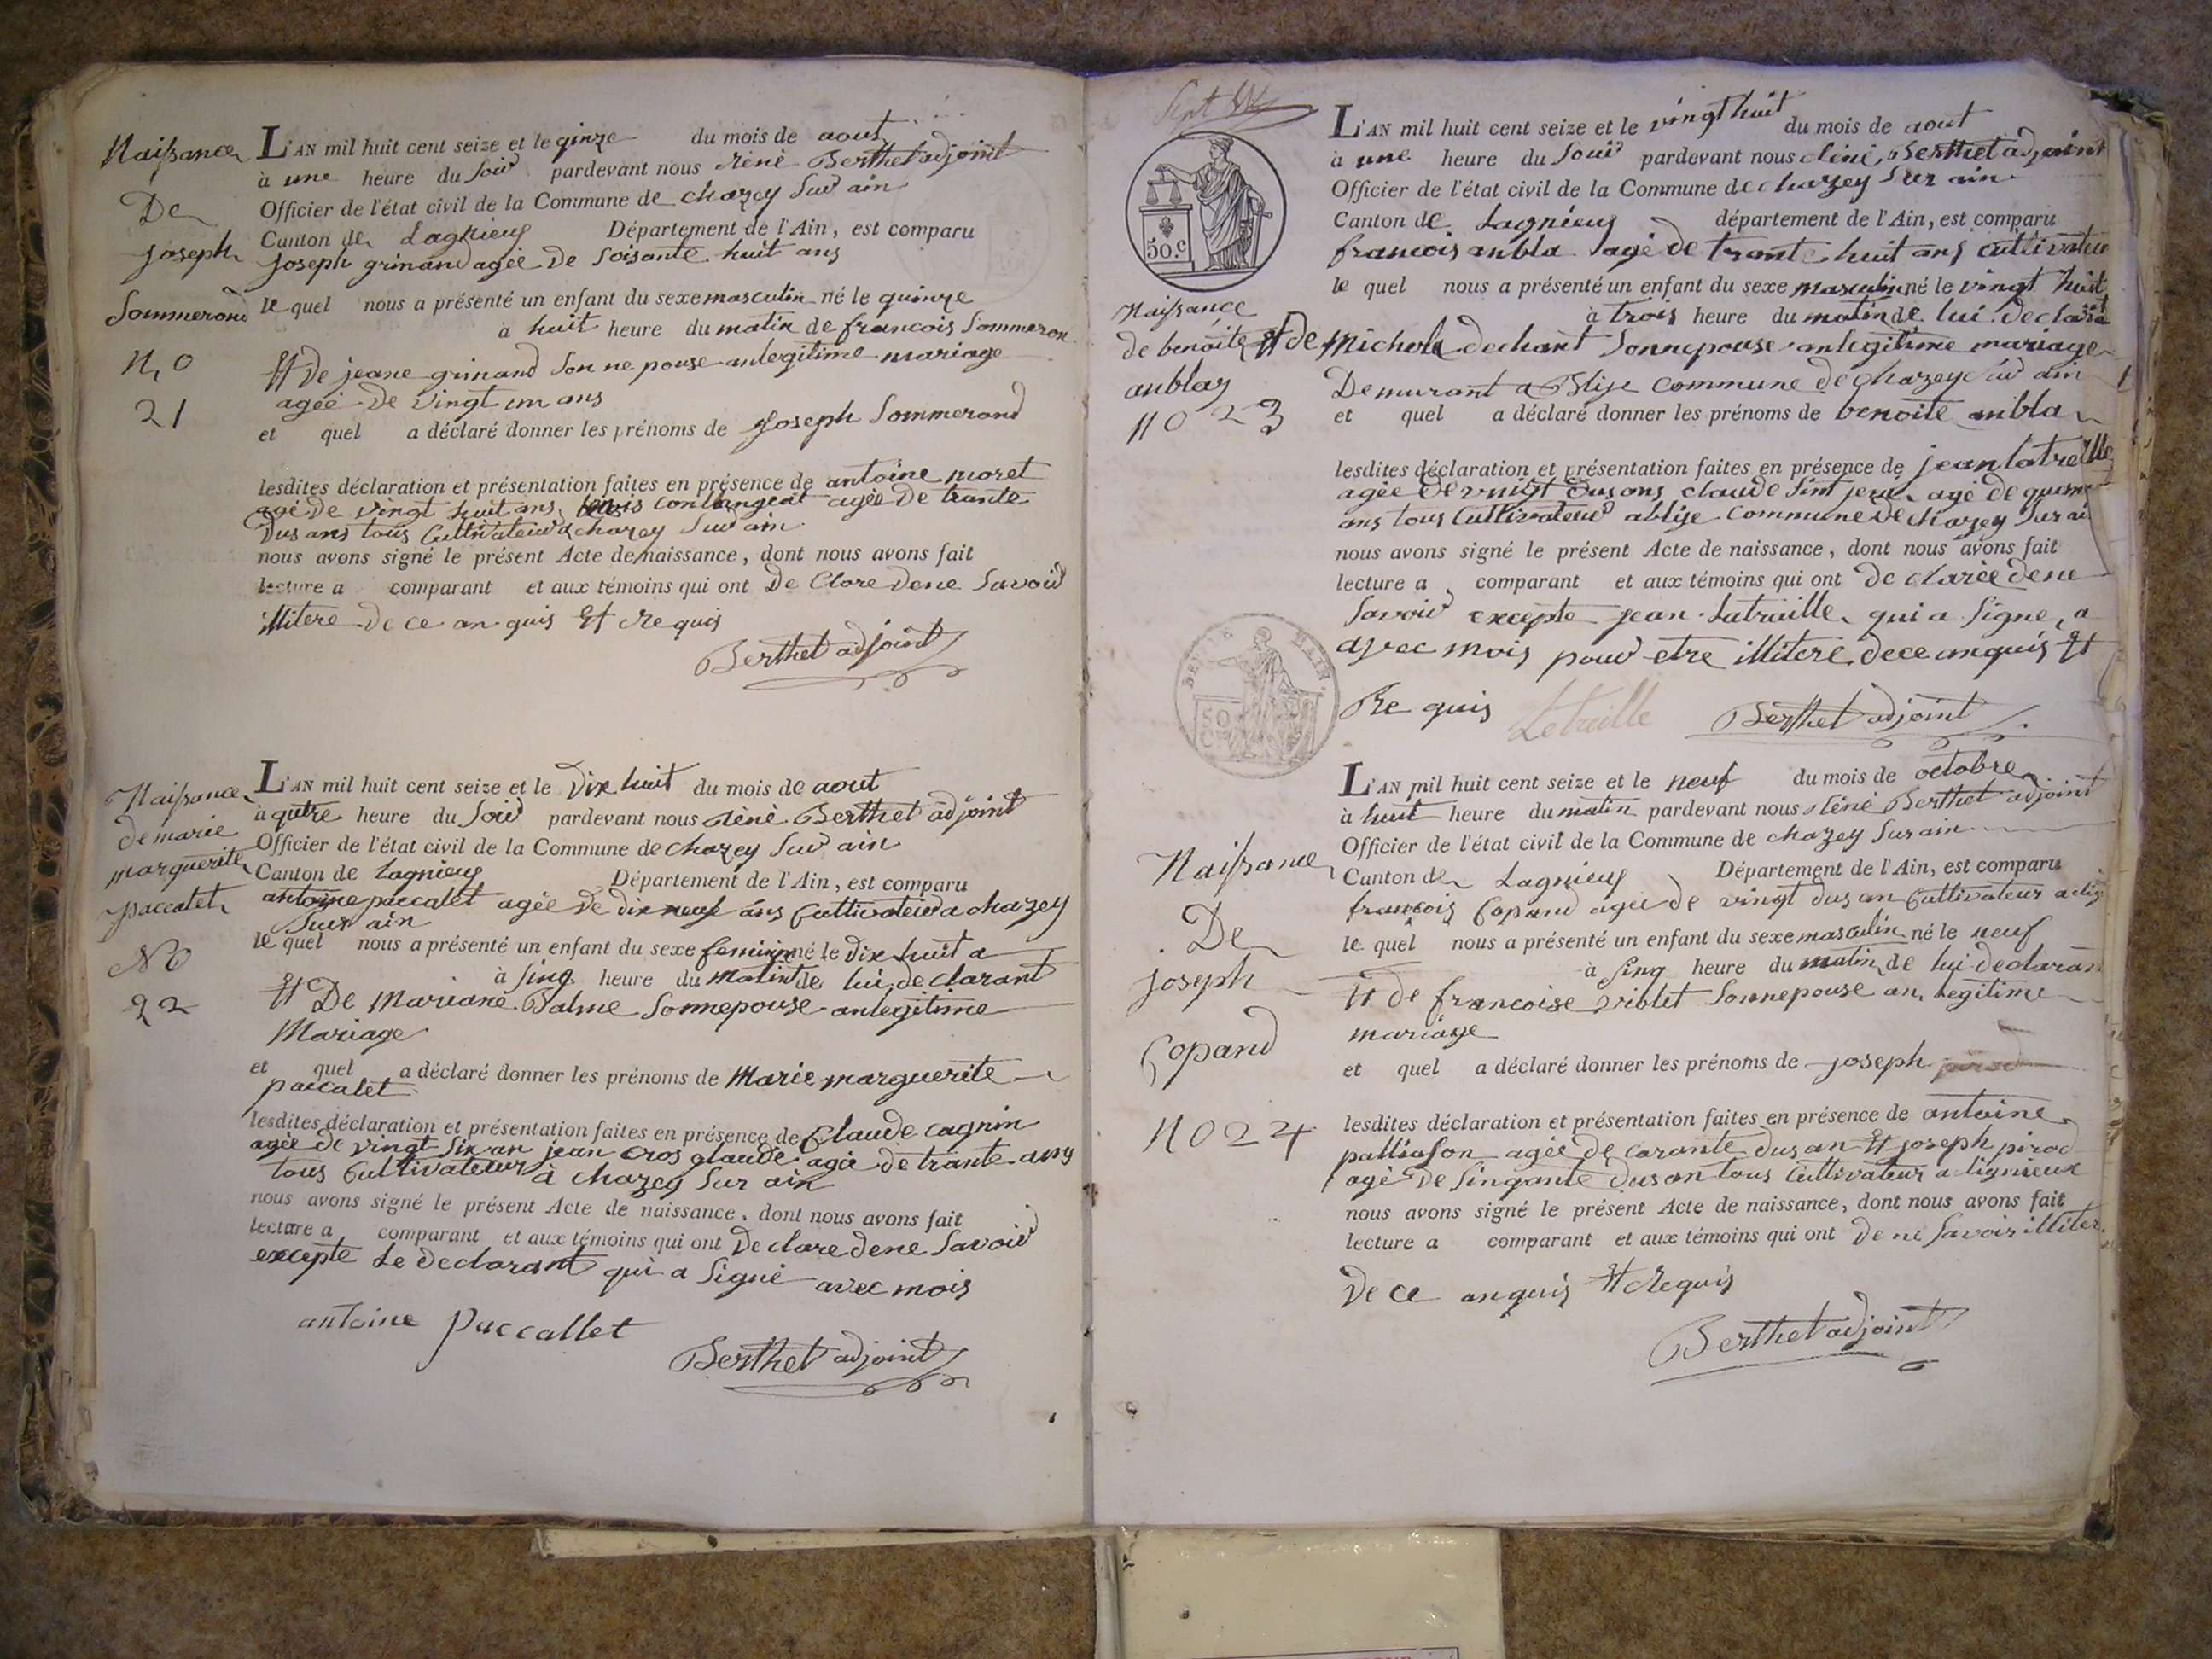 Naissance
De
joseph
Sommerond
N, o
21
L'AN mil huit cent seize et le qinze du mois de aout
à une heure du Soir pardevant nous Réné Berthet adjoint
Officier de l'état civil de la Commune de chazey Sur ain
Canton de Lagnieu Département de l'Ain, est comparu
joseph grinand agée De Soisante huit ans
le quel nous a présenté un enfant du sexe masculin né le quinze
à huit heure du matin de francois Sommeron
Et De jeane grinand Son ne pouse anlegitime mariage
ageé De vingt un ans
et quel a déclaré donner les prénoms de joseph Sommerond
lesdites déclaration et présentation faites en présence de antoine moret
agé De vingt huit ans, agée De trante
Dus ans tous Cultivateur a chazey Sur ain
nous avons signé le présent Acte de naissance, dont nous avons fait
lecture a comparant et aux témoins qui ont De Clare dene Savoir
illitere De ce an quis Et Requis
Berthet adjoint
Naissance
de marie
marguerite
paccalet
No
22
L'AN mil huit cent seize et le Dix huit du mois de aout
à qutre heure du Soir pardevant nous Réné Berthet adjoint
Officier de l'état civil de la Commune de chazey Sur ain
Canton de Lagnieu Département de l'Ain, est comparu
antoine paccalet agée De dix neuf ans Cultivateur a chazey
Sur ain
le quel nous a présenté un enfant du sexe feminin né le Dix huit a
à Sinq heure du matin de lui declarant
Et De Mariane Balme Sonnepouse anlegitime
Mariage
et quel a déclaré donner les prénoms de Marie marguerite
paccalet
lesdites déclaration et présentation faites en présence de Claude cagnin
agée de vingt Six an jean cros glaude agée de trante ans
tous Cultivateur à chazey Sur ain
nous avons signé le présent Acte de naissance, dont nous avons fait
lecture a comparant et aux témoins qui ont De clare dene Savoir
excepte Le declarant qui a Signé avec mois
antoine Paccallet
Berthet adjoint
Sept
50.c
Naissance
de benoite
anblay
No 23
L'AN mil huit cent seize et le vingt huit du mois de aout
à une heure du Soir pardevant nous Réné Berthet adjoint
Officier de l'état civil de la Commune de chazey Sur ain
Canton de Lagnieu département de l'Ain, est comparu
francois anbla agé de trante huit ans cultivateur
le quel nous a présenté un enfant du sexe masculin né le vingt huit
à trois heure du matin de lui declara
Et de Michela dechant Sonnepouse anlegitime mariage
Demurant a Blije Commune de chazey Sur ain
et quel a déclaré donner les prénoms de benoite anbla
lesdites déclaration et présentation faites en présence de jean latreille
agée De vingt Dus ans claude Sint jené agé de
ans tous Cultivateur ablije Commune De chazey Sur ain
nous avons signé le présent Acte de naissance, dont nous avons fait
lecture a comparant et aux témoins qui ont De clareé dene
Savoir excepte jean Latraille qui a Signe, a
avec mois pour etre illiteré dece anquis Et
Re quis
Letraille
Berthet adjoint
50
C
Naissance
De
joseph
Copand
No 24
L'AN mil huit cent seize et le neuf du mois de octobre
à huit heure du matin pardevant nous Réné Berthet adjoint
Officier de l'état civil de la Commune de chazey Sur ain
Canton de Lagnieu Département de l'Ain, est comparu
francois Copand agée de vingt dus an Cultivateur
le quel nous a présenté un enfant du sexe masculin né le neuf
à Sinq heure du matin de lui declaran
Et de francoise violet Sonnepouse an legitime
mariage
et quel a déclaré donner les prénoms de joseph
lesdites déclaration et présentation faites en présence de antoine
palliason agée de carante dus an Et joseph pirod
agé De Sinqante dus an tous Cultivateur a lignieux
nous avons signé le présent Acte de naissance, dont nous avons fait
lecture a comparant et aux témoins qui ont De ne Savoir illiter
De ce anquis Et Requis
Berthet adjoint